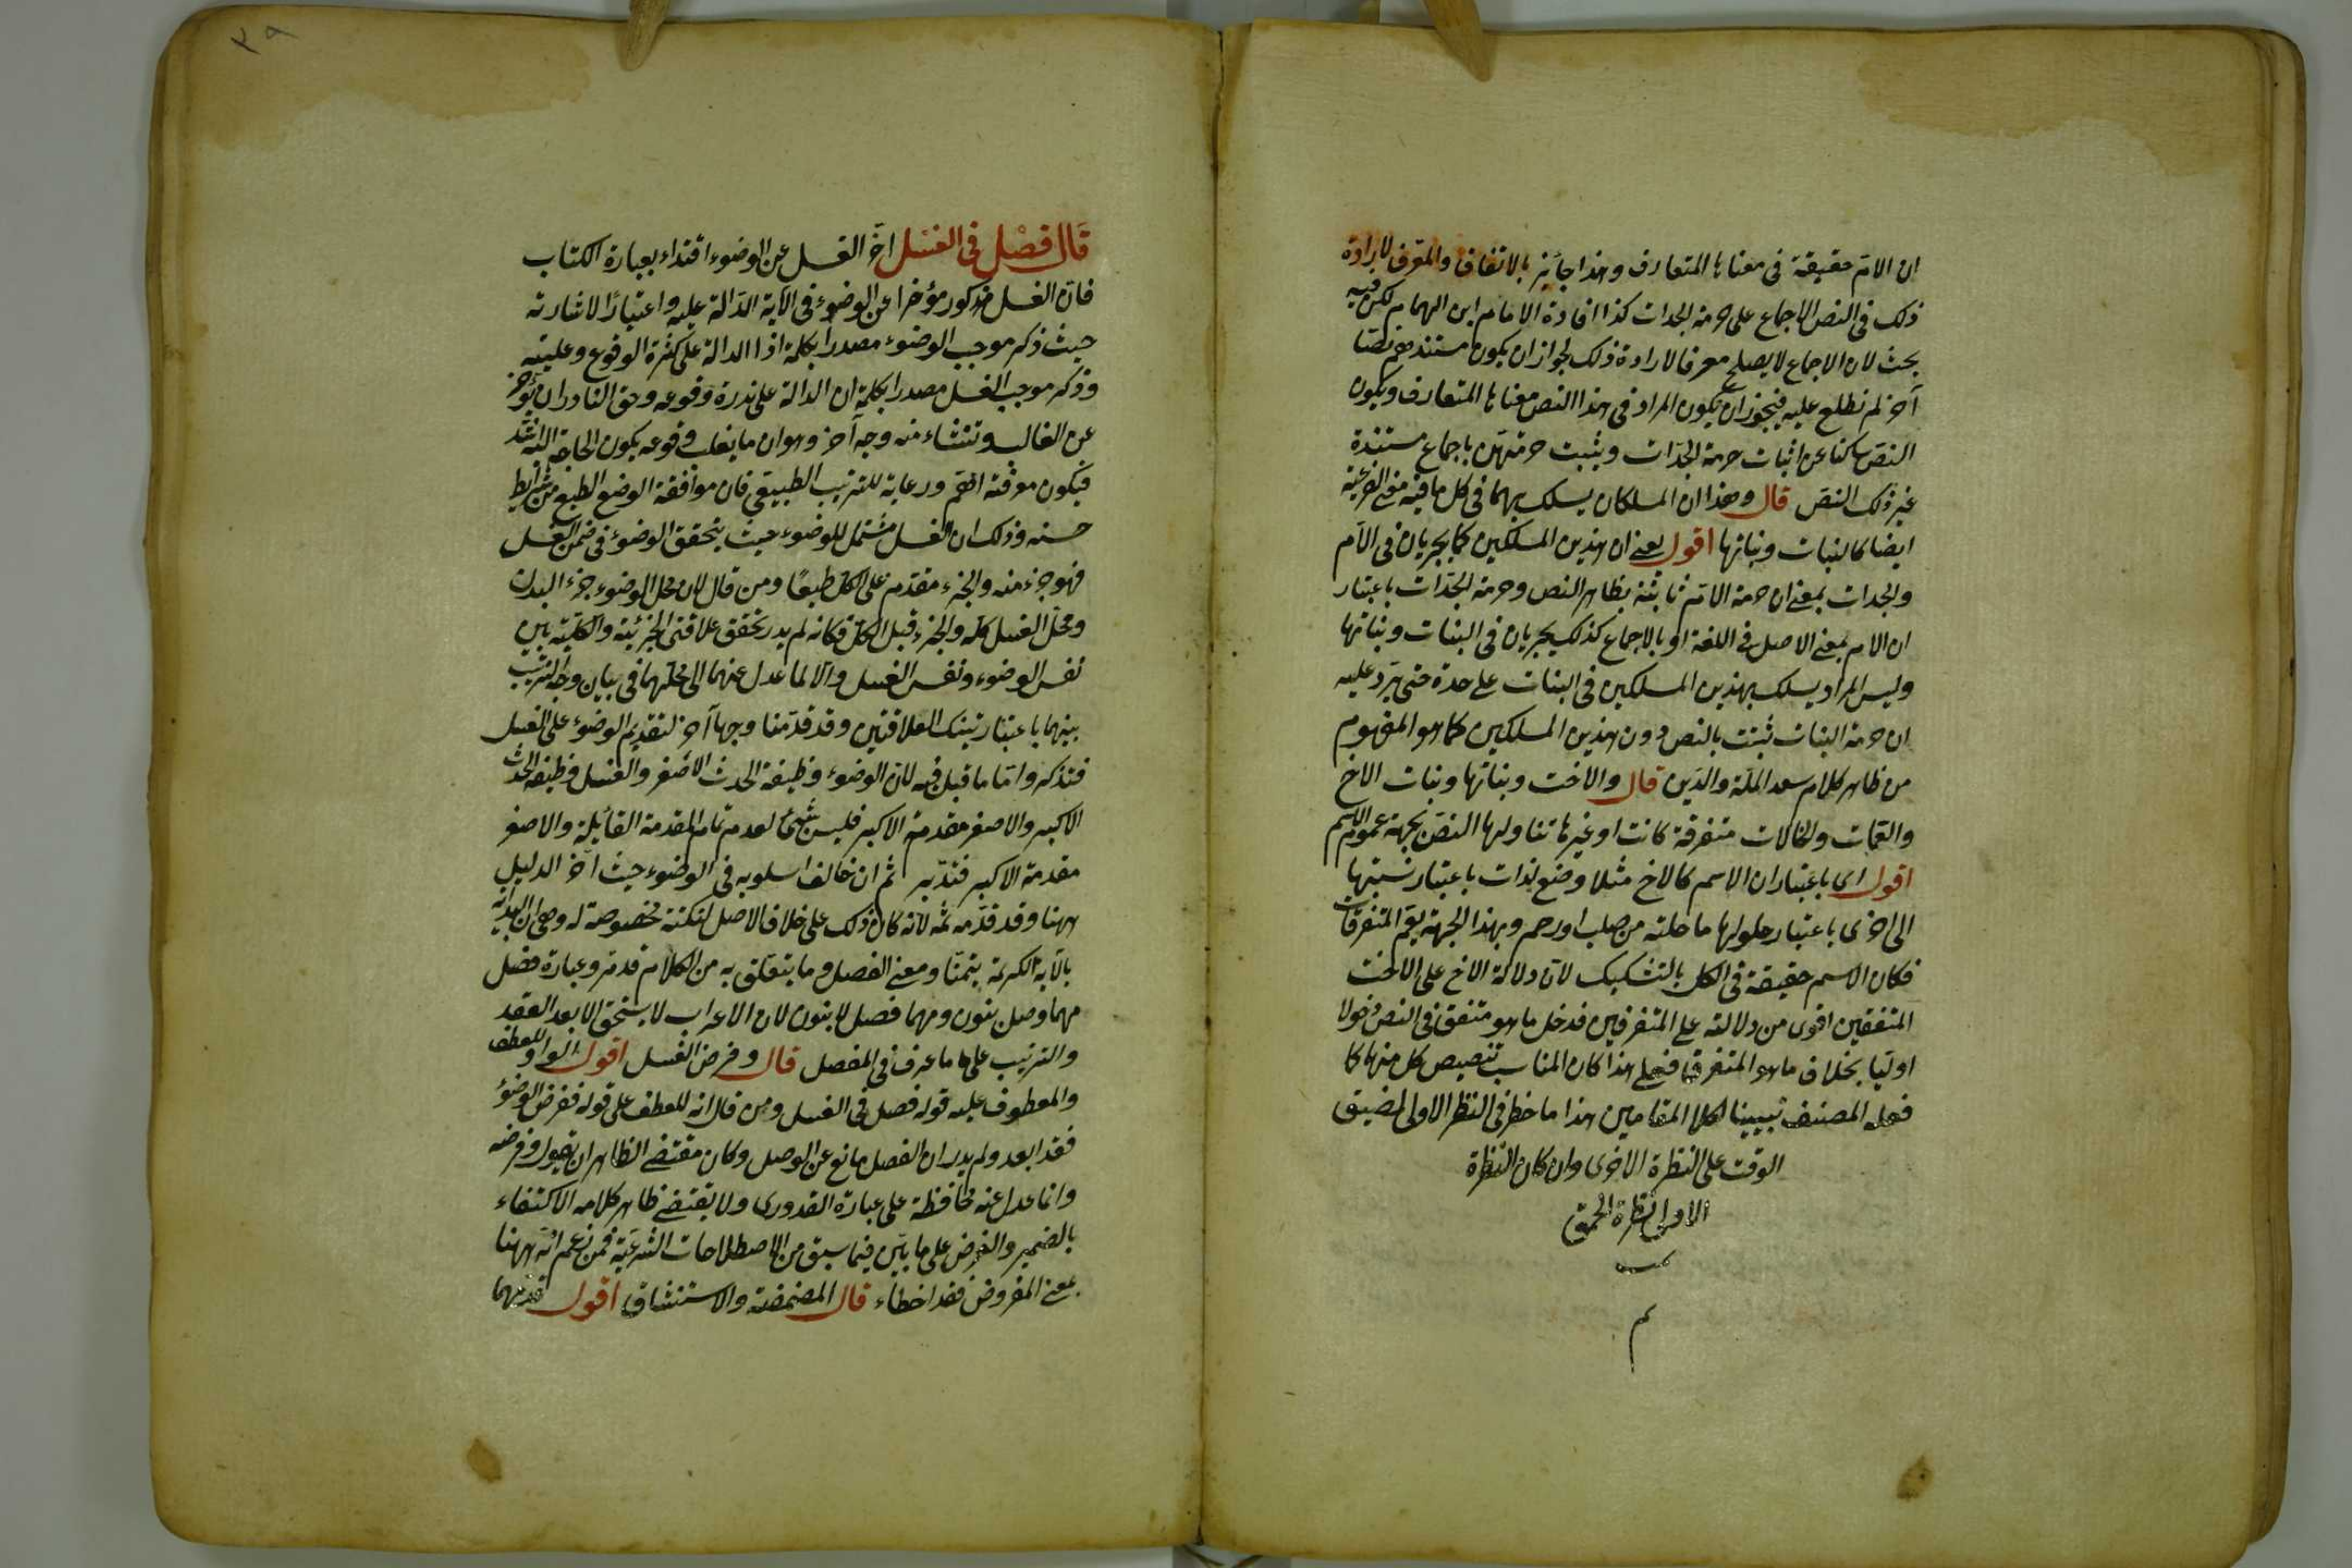 ان الام حقيقة فى معناها المتعارف وهذا جائز بالاتفاق والمعرف لارادة
ذلك فى النص الاجماع على حرمة الجدات كذا افادة الامام ابن الهمام لكن فيه
بحث لان الاجماع لا يصلح معرفا لارادة ذلك لجواز ان يكون مستندهم نصا
آخر لم نطلع عليه فيجوز ان يكون المراد فى هذا النص معناها المتعارف ويكون
النص ساكتا عن اثبات حرمة الجدات ويثبت حرمتهن باجماع مستندة
غير ذلك النص قال وهذان المسلكان يسلك بهما فى كل ما فيه معنى الفرعية
ايضا كالبنات وبناتها اقول يعنى ان هذين المسلكين كما يجريان فى الام
والجدات بمعنى ان حرمة الام ثابتة بظاهر النص وحرمة الجدات باعتبار
ان الام بمعنى الاصل فى اللغة او بالاجماع كذلك يجريان فى البنات وبناتها
وليس المراد يسلك بهذين المسلكين فى البنات على حدة حتى يرد عليه
ان حرمة البنات ثبتت بالنص دون هذين المسلكين كما هو المفهوم
من ظاهر كلام سعد الملة والدين قال والاخت وبناتها وبنات الاخ
والعمات والخالات متفرقة كانت او غيرها تناولها النص بجهة عموم الاسم
اقول اى باعتبار ان الاسم كالاخ مثلا وضع لذات باعتبار نسبتها
الى اخرى باعتبار حلولها ما حلته من صلب او رحم وبهذا الجهة يعم المتفرقات
فكان الاسم حقيقة فى الكل بالتشكيك لان دلالة الاخ على الاخت
المتفقين اقوى من دلالته على المتفرقين فدخل ما هو متفق فى النص دخولا
اوليا بخلاف ما هو المتفرق فعلى هذا كان المناسب تنصيص كل منها كما
فعله المصنف تبيينا لكلا المقامين هذا ما خطر فى النظر الاولى لمضيق
الوقت على النظرة الاخرى وان كان النظرة
الاولى نظرة الحمق
م
قال فصل فى الغسل اخر الغسل عن الوضوء اقتداء بعبارة الكتاب
فان الغسل مذكور مؤخرا عن الوضوء فى الآية الدالة عليه واعتبارا لاشارته
حيث ذكر موجب الوضوء مصدرا بكلمة اذا الدالة على كثرة الوقوع وغلبته
وذكر موجب الغسل مصدرا بكلمة ان الدالة على ندرة وقوعه وحق النادر ان يؤخر
عن الغالب وتنشاء منه وجه آخر وهو ان ما يغلب وقوعه يكون الحاجة اليه اشد
فيكون معرفته اهم ورعاية للترتيب الطبيعى فان موافقة الوضع الطبع من شرائط
حسنه وذلك ان الغسل مشتمل للوضوء حيث يتحقق الوضوء فى ضمن الغسل
فهو جزء منه والجزء مقدم على الكل طبعا ومن قال لان محل الوضوء جزء البدن
ومحل الغسل كله والجزء قبل الكل فكانه لم يدر تحقق علاقتى الجزئية والكلية بين
نفس الوضوء ونفس الغسل والا لما عدل عنهما الى محلهما فى بيان وجه الترتيب
بينهما باعتبار تينك العلاقتين وقد قدمنا وجها آخر لتقديم الوضوء على الغسل
فتذكر واما ما قيل فيه لان الوضوء وظيفة الحدث الاصغر والغسل وظيفة الحدث
الاكبر والاصغر مقدمة الاكبر فليس بشىء لعدم تمام المقدمة القائلة والاصغر
مقدمة الاكبر فتدبر ثم ان خالف اسلوبه فى الوضوء حيث آخر الدليل
ههنا وقد قدمه ثمة لانه كان ذلك على خلاف الاصل لنكتة مخصوصة له وهى ان البداية
بالآية الكريمة تيمنا ومعنى الفصل وما يتعلق به من الكلام قد مر وعبارة فصل
مهما وصل ينون ومهما فصل لا ينون لان الاعراب لا يستحق الا بعد العقد
والتركيب على ما عرف فى المفصل قال وفرض الغسل اقول الواو للعطف
والمعطوف عليه قوله فصل فى الغسل ومن قال انه للعطف على قوله ففرض الوضوء
فقد ابعد ولم يدر ان الفصل مانع عن الوصل وكان مقتضى الظاهر ان يقول وفرضه
وانما عدل عنه محافظة على عبارة القدورى ولا يقتضى ظاهر كلامه الاكتفاء
بالضمير والفرض على ما بين فيما سبق من الاصطلاحات الشرعية فمن زعم انه ههنا
بمعنى المفروض فقد اخطاء قال المضمضة والاستنشاق اقول قدمهما